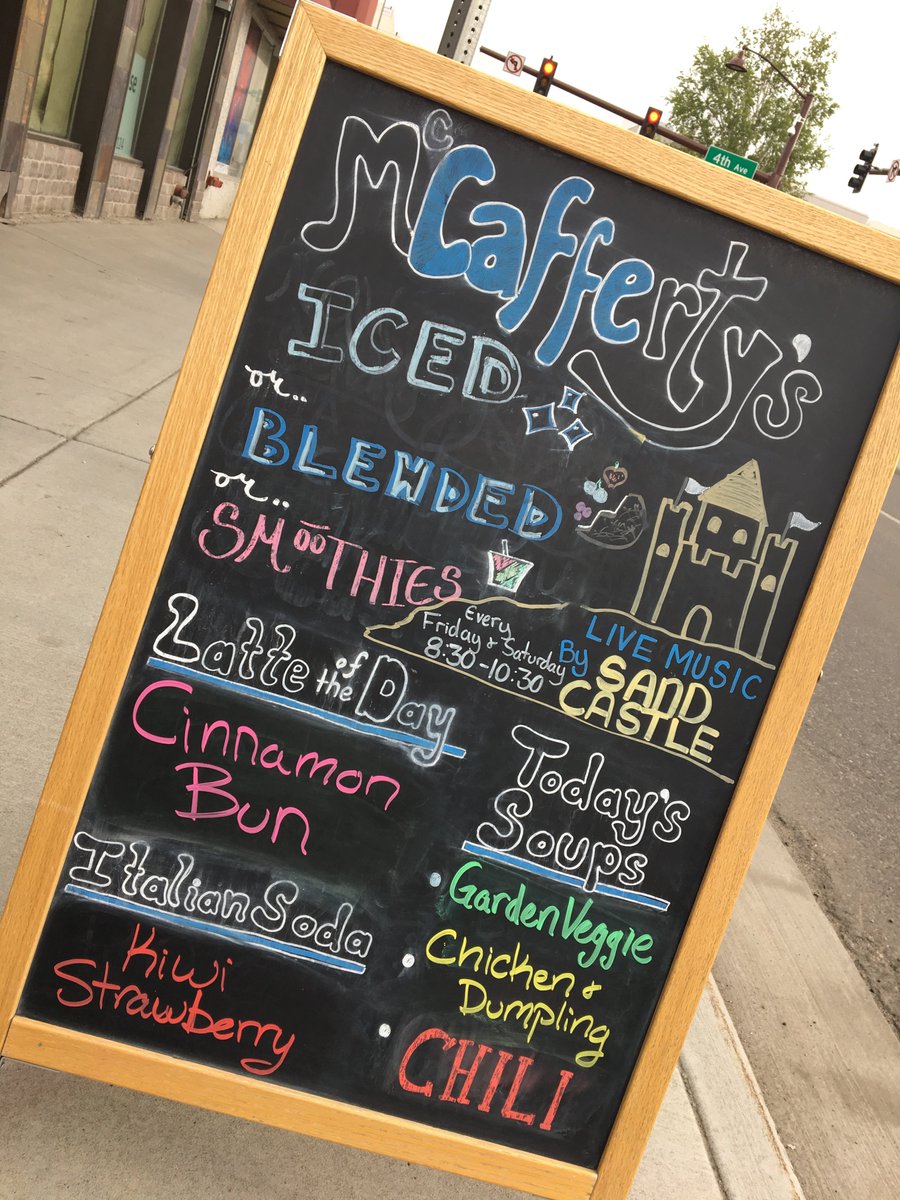 4th Ave
McCafferty's
ICED
or..
BLENDED
or...
SMOOTHIES
Every
Friday & Saturday
8:30-10:30
LIVE MUSIC
By SAND
CASTLE
Latte of the Day
Cinnamon
Bun
Italian Soda
Kiwi
Strawberry
Today's
Soups
Garden Veggie
Chicken &
Dumpling
CHILI